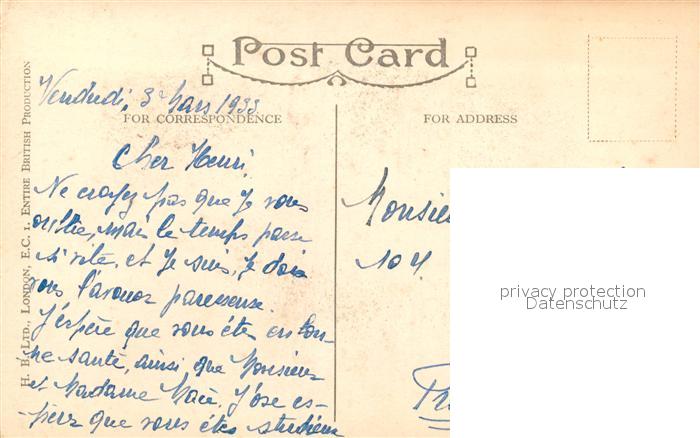 Post Card
Vendredi, 3 Mars 1933
FOR CORRESPONDENCE
FOR ADDRESS
H. B. LTD., LONDON, E.C. 1. ENTIRE BRITISH PRODUCTION
Cher Henri,
Ne croyez pas que je vous
oublie, mais le temps passe
si vite, et je suis, je dois
vous l'avouer paresseuse.
J'espère que vous êtes en bon-
ne santé, ainsi que Monsieur
et Madame J'ose es-
-pérer que vous êtes studieux
Monsie
104.
privacy protection
Datenschutz